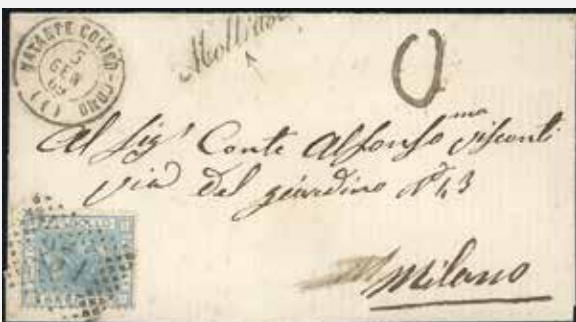 NATANTE COLICO-COMO
5
GEN
69
(1)
O
Al Sig.r Conte Alfonso Visconti
via Del giardino N° 43
Milano